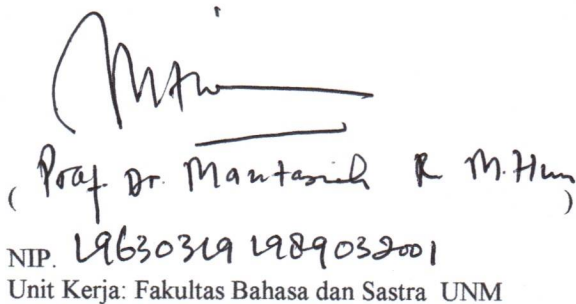 ( Prof. Dr. Mantasiah R. M. Hum )
NIP. 19630319 198903 2001
Unit Kerja: Fakultas Bahasa dan Sastra UNM